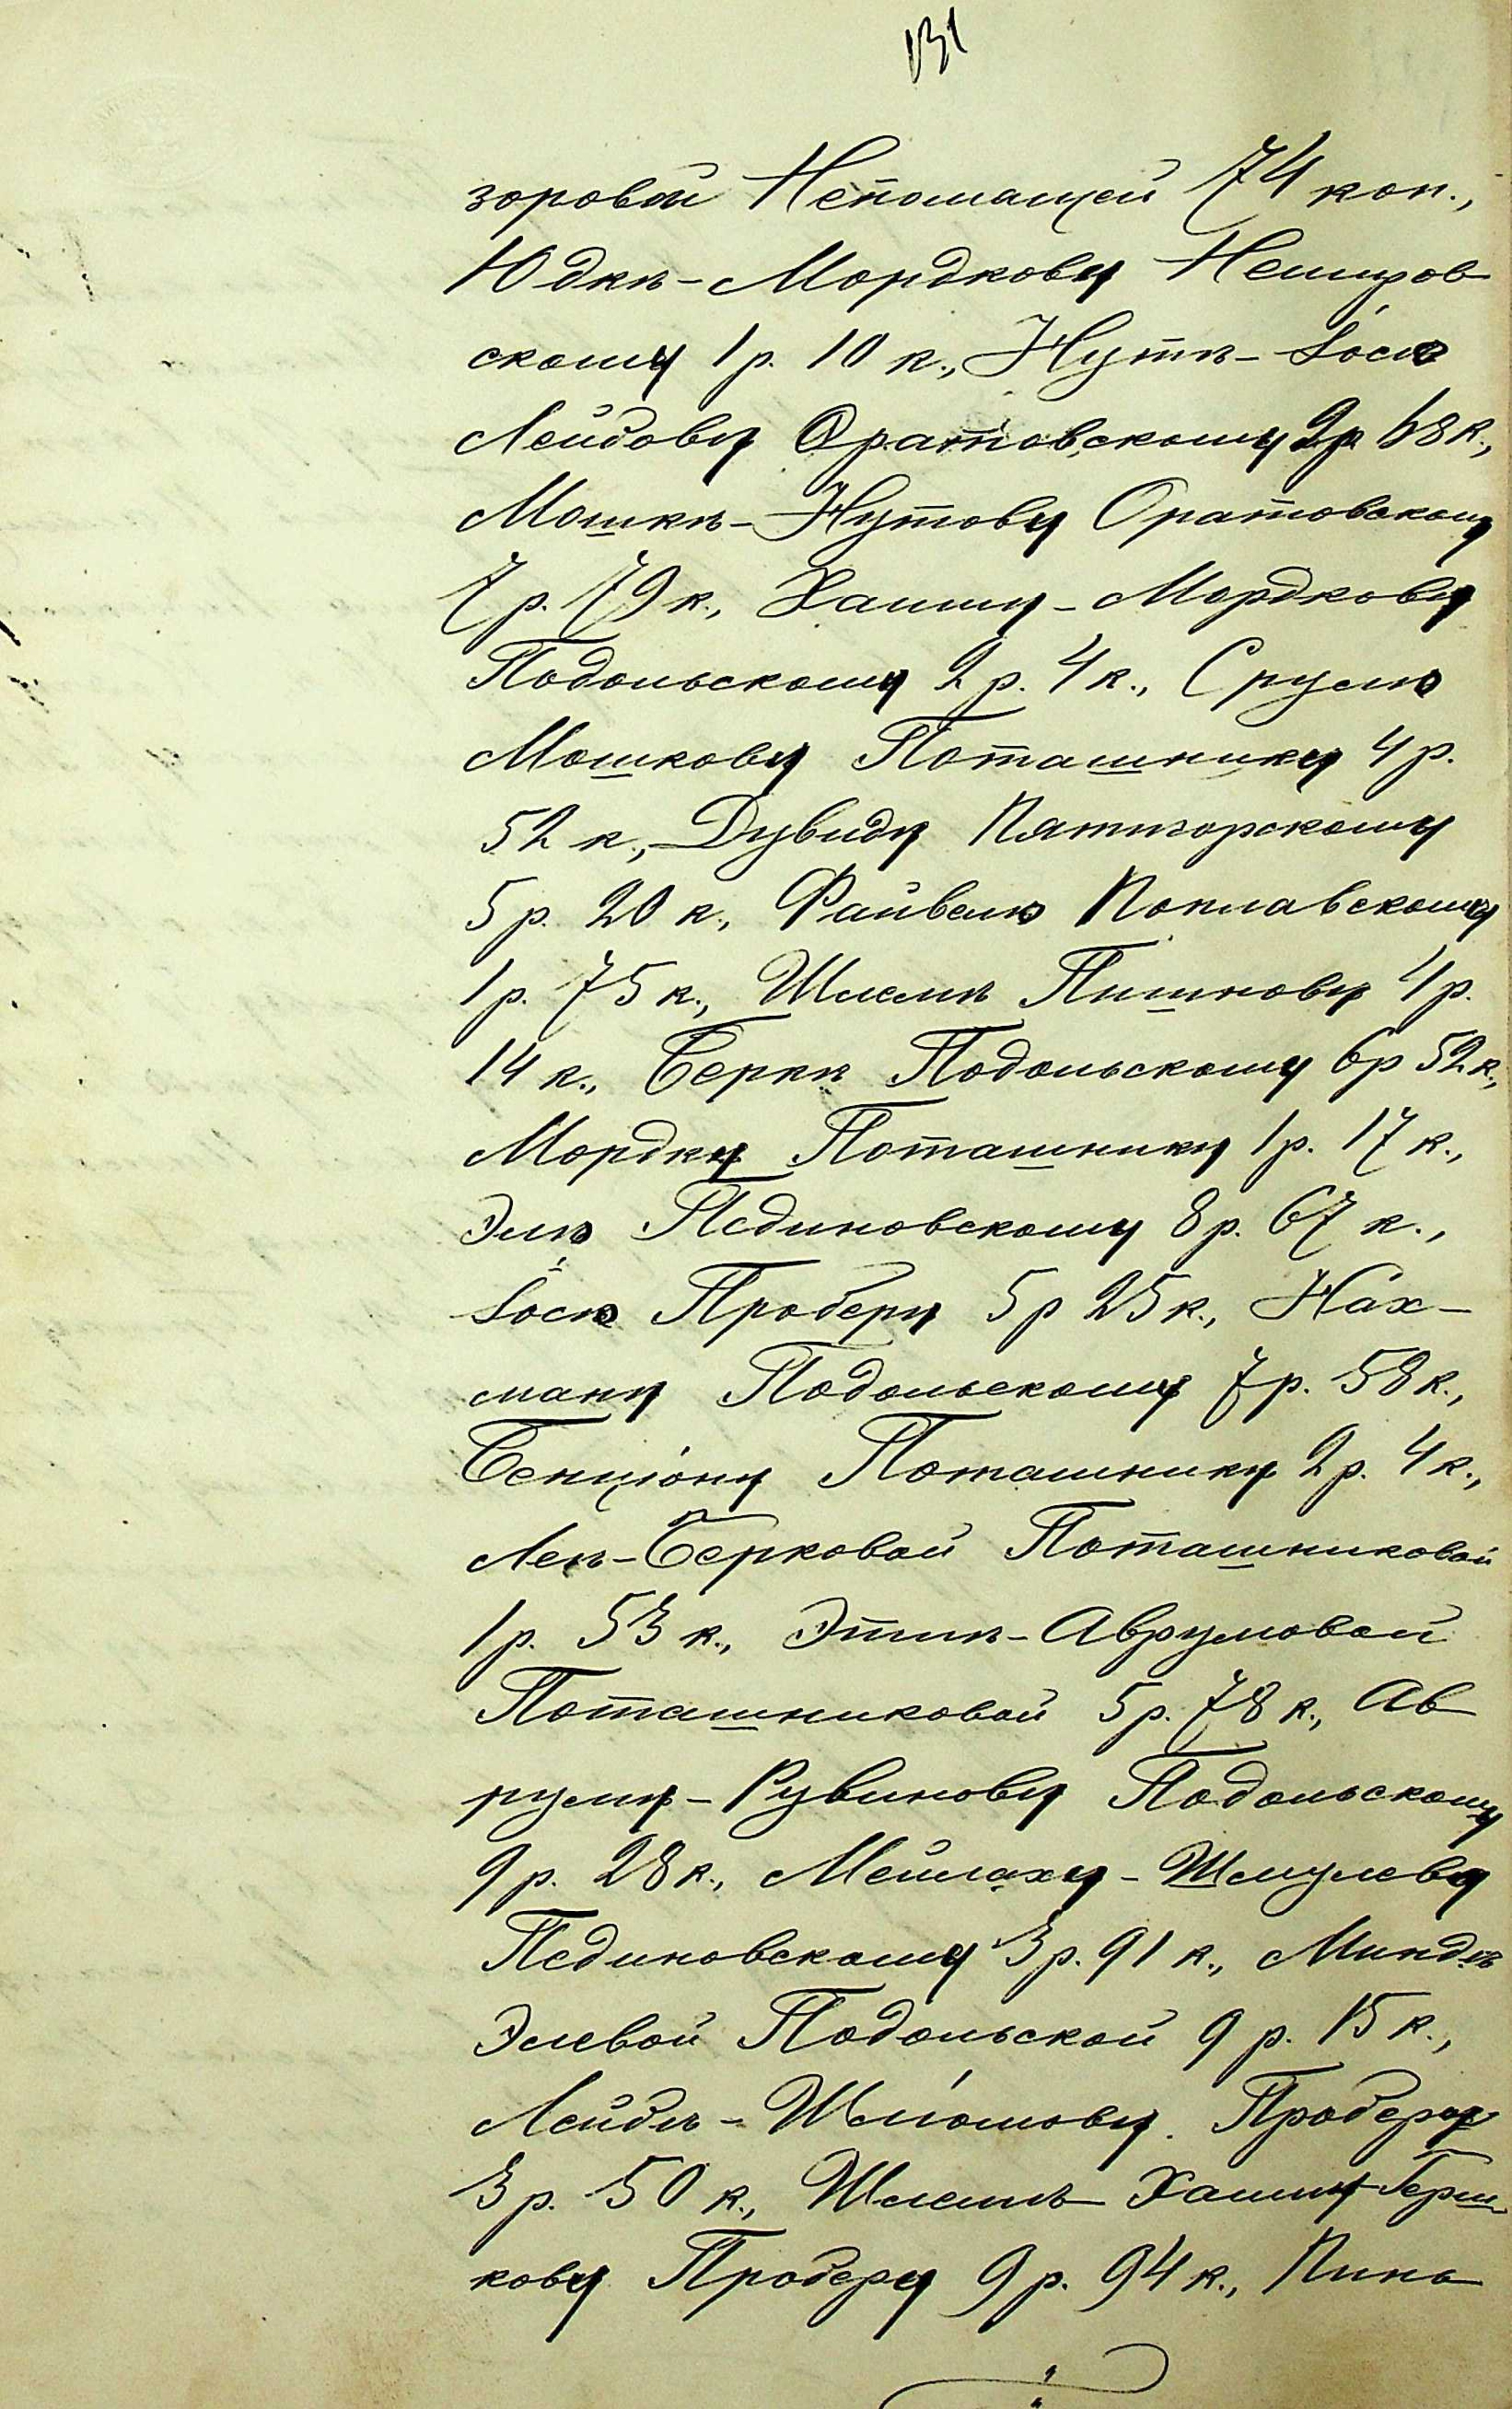 131
зоровой Непомащей 74 коп.,
Юдкѣ-Мордкову Немиров-
скому 1 р. 10 к., Нутѣ-Іосю
Лейбову Оратовскому 2р 68 к.,
Мошкѣ-Нутову Оратовскому
7 р. 79 к., Хаиму-Мордкову
Подольскому 2 р. 4 к., Срулю
Мошкову Поташнику 4 р.
52 к., Дувиду Пятигорскому
5 р. 20 к., Файвелю Поплавскому
1 р. 75 к., Шлемѣ Пишнову 4 р.
14 к., Беркѣ Подольскому 6р 52 к.,
Мордку Поташнику 1 р. 17 к.,
Элю Пединовскому 8 р. 67 к.,
Іосю Проберу 5 р 25 к., Нах-
ману Подольскому 7 р. 58 к.,
Бенціону Поташнику 2 р. 4 к.,
Леѣ-Берковой Поташниковой
1 р. 53 к., Этлѣ-Аврумовой
Поташниковой 5 р. 78 к., Ав-
руму-Рувинову Подольскому
9 р. 28 к., Мейлаху-Шмулеву
Пединовскому 3 р. 91 к., Миндлѣ
Элевой Подольской 9 р. 15 к.,
Лейбѣ-Шліомову Проберу
3 р. 50 к., Шлемѣ-Хаиму-Герш-
кову Проберу 9 р. 94 к., Пинь-